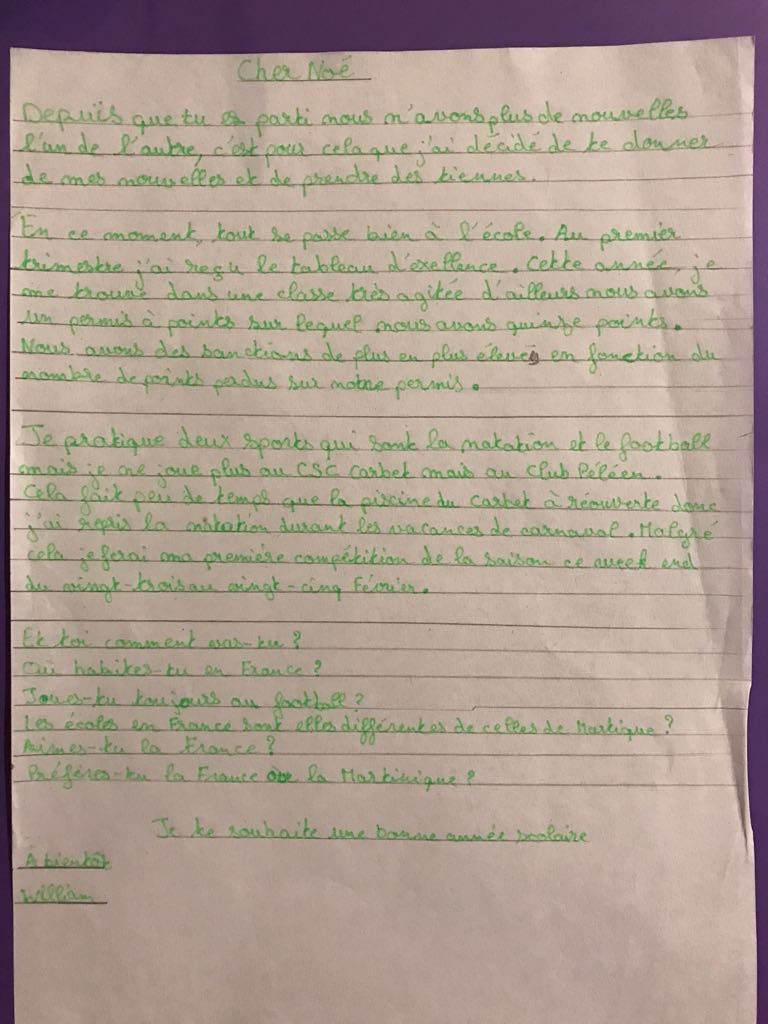 Cher Noé
Depuis que tu es parti nous n'avons plus de nouvelles
l'un de l'autre, c'est pour cela que j'ai décidé de te donner
de mes nouvelles et de prendre des tiennes.
En ce moment, tout se passe bien à l'école. Au premier
trimestre j'ai reçu le tableau d'exellence. Cette année, je
me trouve dans une classe très agitée d'ailleurs nous avons
un permis à points sur lequel nous avons quinze points.
Nous avons des sanctions de plus en plus élevés en fonction du
nombre de points perdus sur notre permis.
Je pratique deux sports qui sont la natation et le football
mais je ne joue plus au CSC Carbet mais au Club Péléen.
Cela fait peu de temps que la piscine du Carbet à réouverte donc
j'ai repris la natation durant les vacances de carnaval. Malgré
cela je ferai ma première compétition de la saison ce week end
du vingt-trois au vingt-cinq Février.
Et toi comment vas-tu ?
Où habites-tu en France ?
Joues-tu toujours au football ?
Les écoles en France sont elles différentes de celles de Martique ?
Aimes-tu la France ?
Préfères-tu la France ou la Martinique ?
Je te souhaite une bonne année scolaire
A bientôt
William